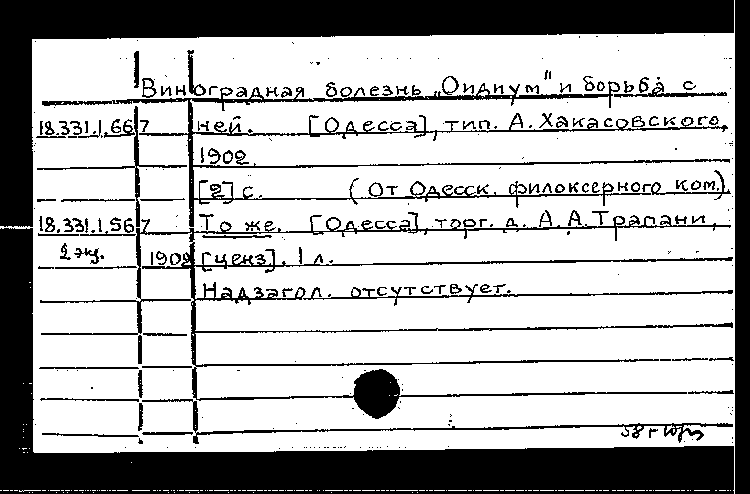 Виноградная болезнь „Оидиум" и борьба с
18.331.1.667 ней. [Одесса], тип. А. Хакасовского,
1902.
[2] с. (От Одесск. филоксерного ком.).
18.331.1.567 То же. [Одесса], торг. д. А. А. Трапани,
2 экз. 1902 [ценз]. 1 л.
Надзагол. отсутствует.
58 г